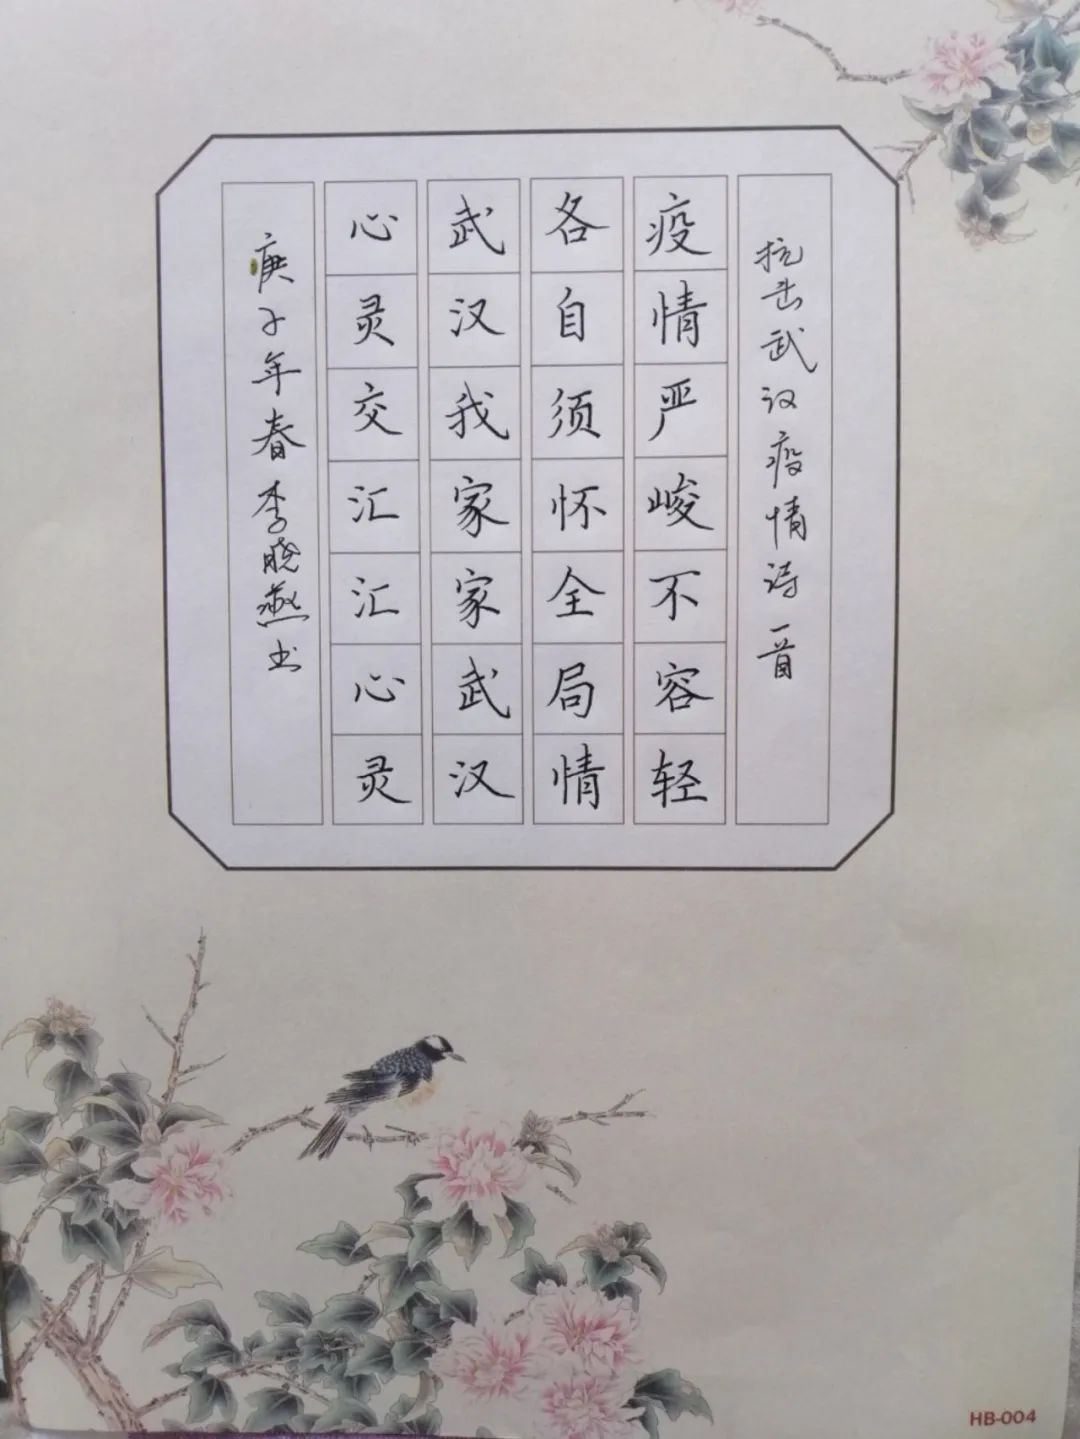 抗击武汉疫情诗一首
疫情严峻不容轻
各自须怀全局情
武汉我家家武汉
心灵交汇汇心灵
庚子年春李晓燕书
HB-004